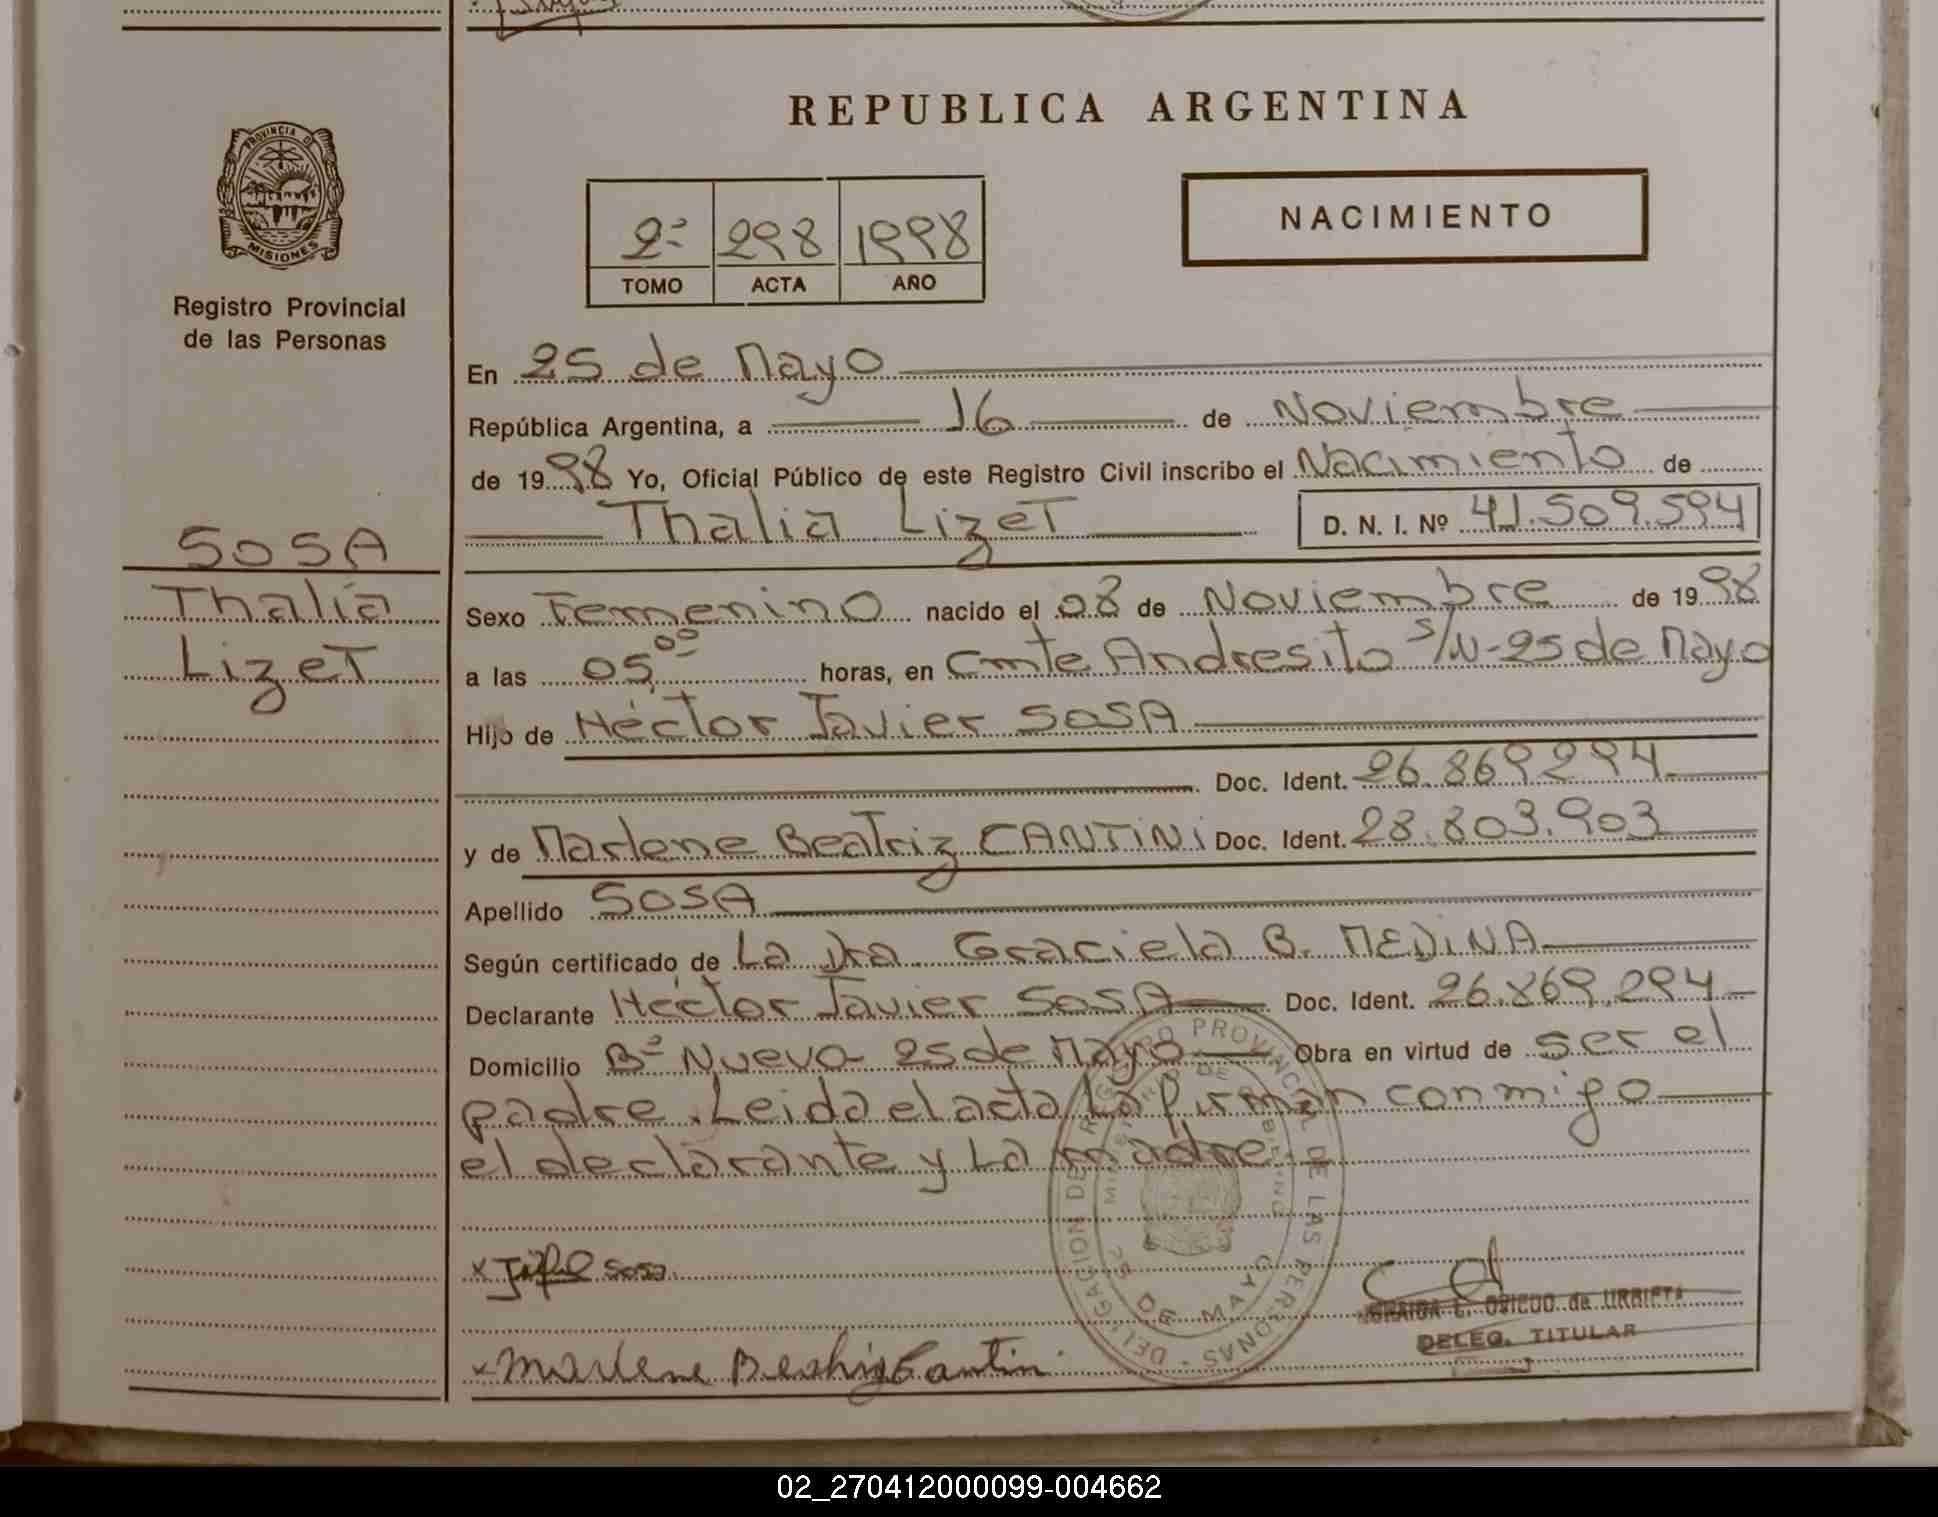 REPUBLICA ARGENTINA
PROVINCIA DE
MISIONES
Registro Provincial
de las Personas
2º 298 1998
TOMO ACTA AÑO
NACIMIENTO
En 25 de Mayo
República Argentina, a 16 de Noviembre
de 1998 Yo, Oficial Público de este Registro Civil inscribo el Nacimiento de
Thalia Lizet D. N. I. Nº 41.509.594
SOSA
Thalía
Lizet
Sexo Femenino nacido el 08 de Noviembre de 1998
a las 05,00 horas, en Cmte Andresito s/N-25 de Mayo
Hijo de Héctor Javier SOSA
Doc. Ident. 26.869294
y de Marlene Beatriz CANTINI Doc. Ident. 28.803.903
Apellido SOSA
Según certificado de La Dra. Graciela B. MEDINA
Declarante Héctor Javier SOSA Doc. Ident. 26.869.294
Domicilio Bº Nuevo 25 de Mayo Obra en virtud de ser el
padre. Leida el acta la firman conmigo
el declarante y La madre
DELEGACION DEL REGISTRO PROVINCIAL DE LAS PERSONAS
25 DE MAYO
x sosa
x Marlene Beatriz Cantini
OVIEDO de URRIETA
DELEG. TITULAR
02_270412000099-004662